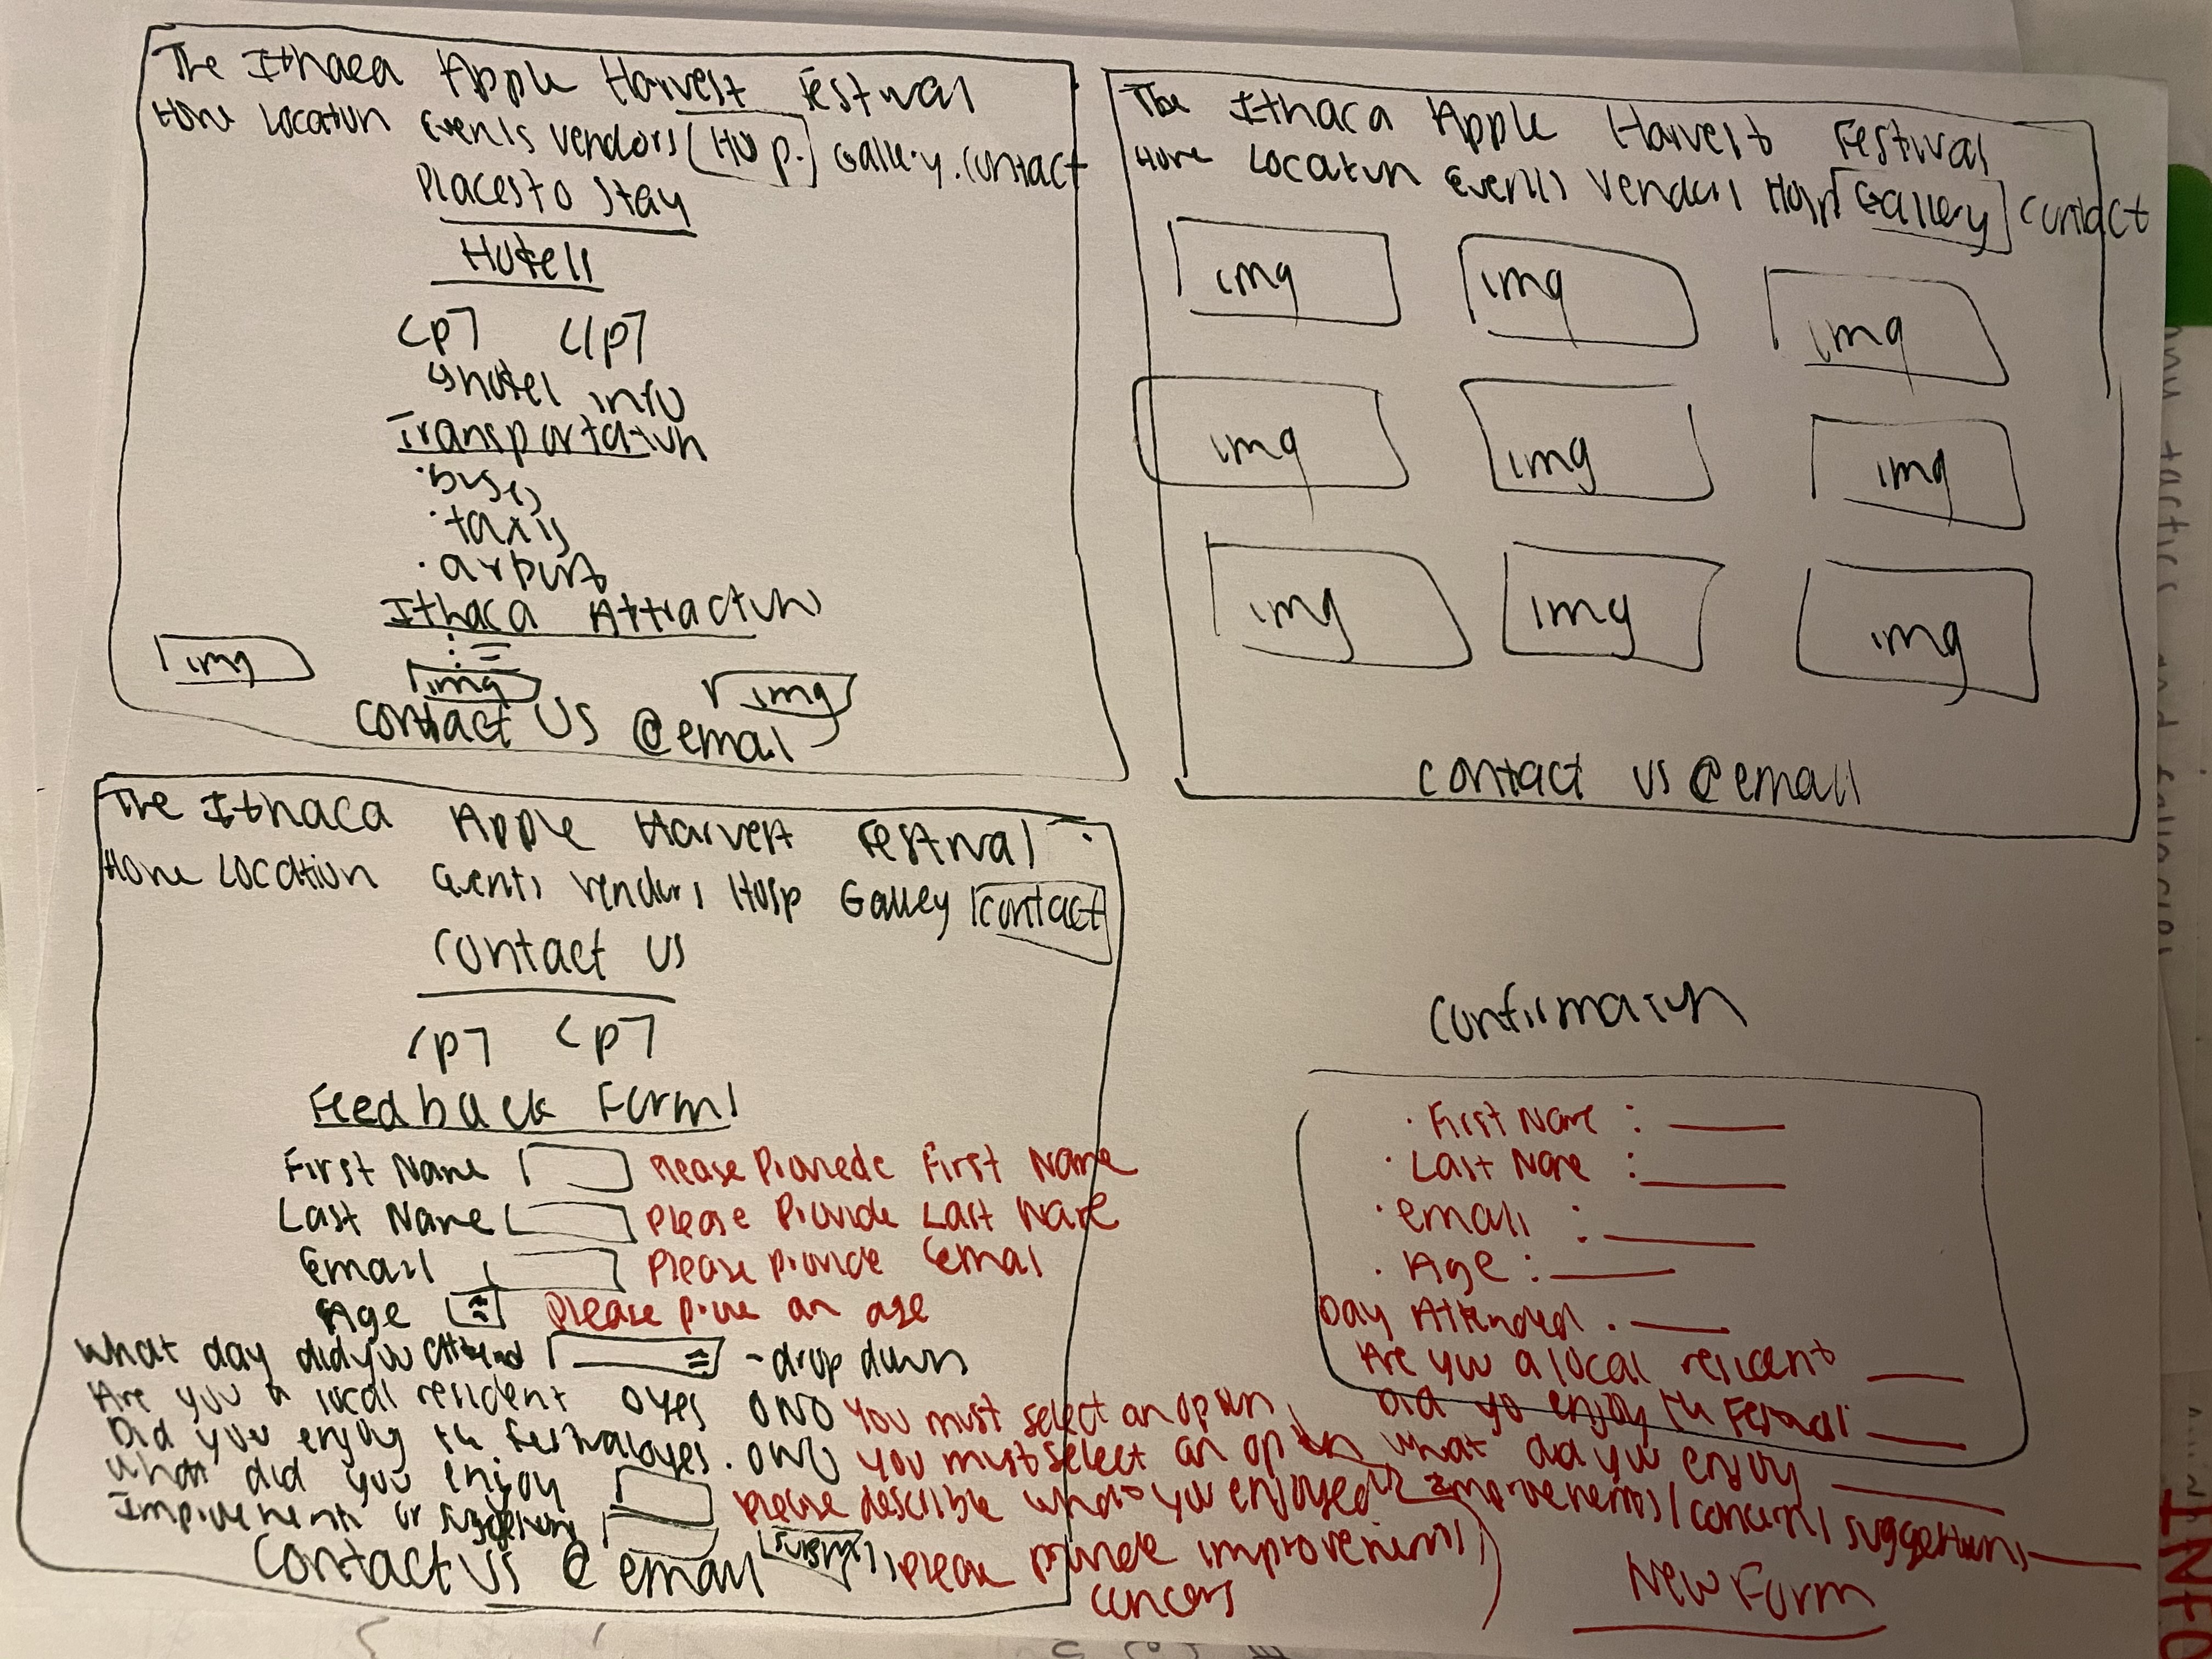 The Ithaca Apple Harvest Festival
Home Location Events Vendors Hosp. Gallery Contact
Places to Stay
Hotels
<p> </p>
hotel info
Transportation
· buses
· taxis
· airport
Ithaca Attraction
img
img
img
Contact US @email
The Ithaca Apple Harvest Festival
Home Location Events Vendors Hosp Gallery Contact
img img img
img img img
img img img
contact us @email
The Ithaca Apple Harvest Festival
Home Location Events Vendors Hosp Gallery contact
Contact us
<p> <p>
Feedback Form
First Name Please Provide First Name
Last Name Please Provide Last Name
Email Please provide Email
Age Please an age
What day did you attend - drop down
Are you a local resident o yes o NO You must select an option
Did you enjoy the festival o yes . o NO You must select an option
What did you enjoy please describe what you enjoyed
Improvements or suggestions please provide improvements/
concerns
Contact us @ email submit
Confirmation
· First Name :
· Last Name :
· email :
· Age :
Day Attended .
Are you a local resident
Did yo enjoy the Festival
What did you enjoy
Improvements/concerns/suggestions
New Form
INFO